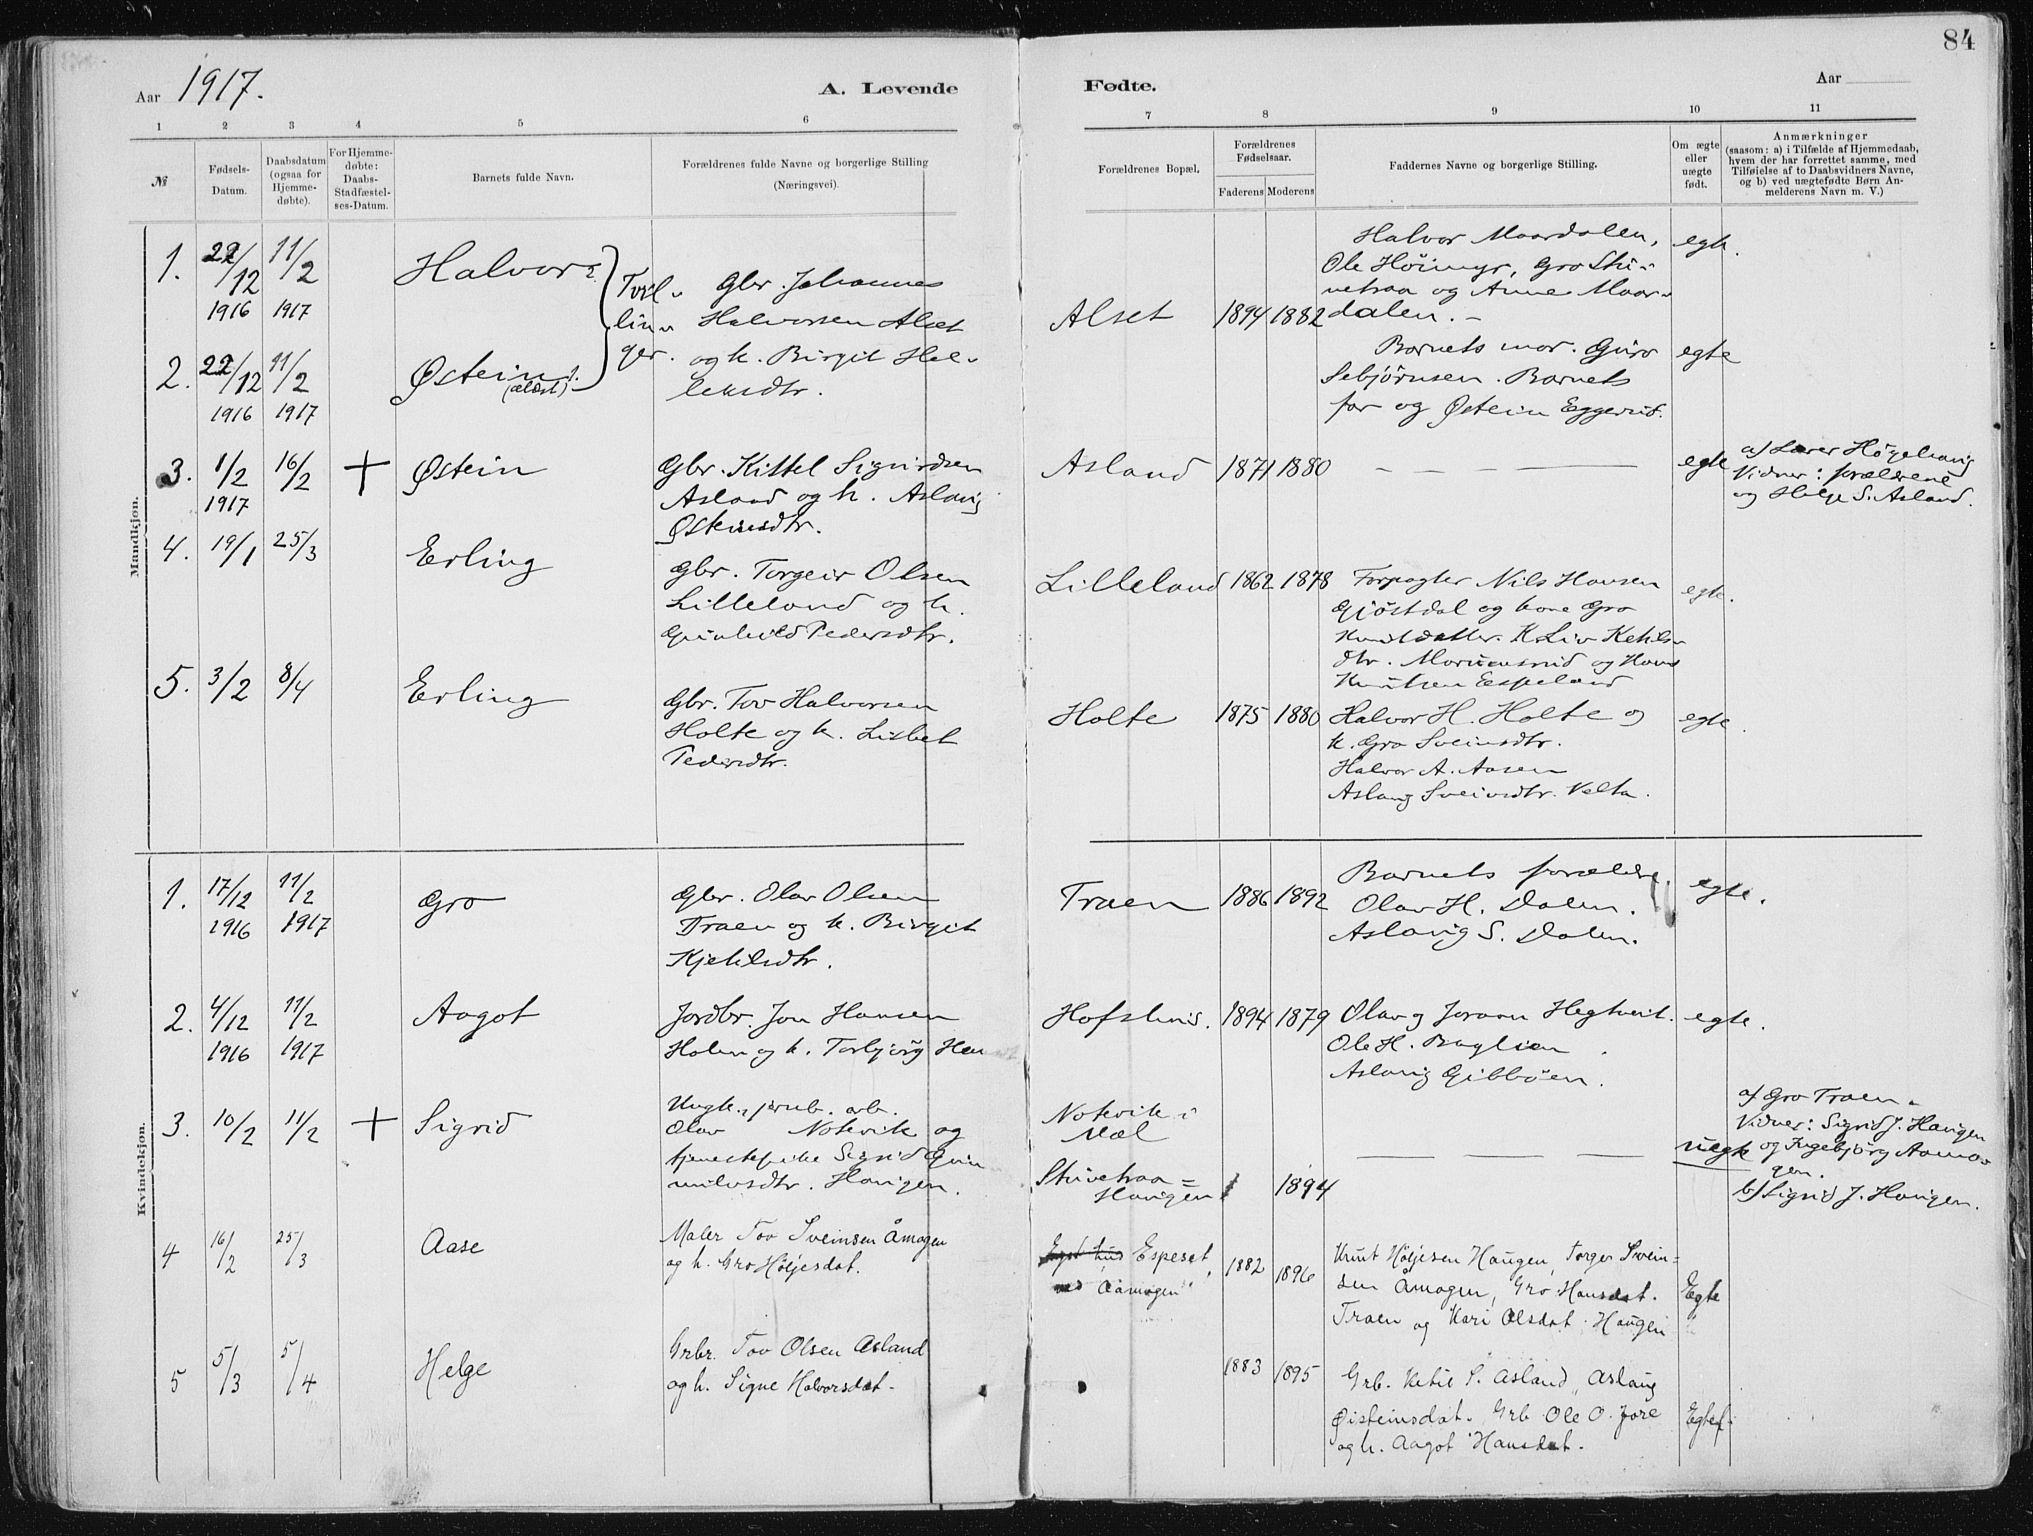 84
Aar 1917.
A. Levende
Fødte.
Aar
1 2 3 4 5 6 7 8 9 10 11
№
Fødsels-
Datum.
Daabsdatum
(ogsaa for
Hjemme-
døbte).
For Hjemme-
døbte:
Daabs-
Stadfæstel-
ses-Datum.
Barnets fulde Navn.
Forældrenes fulde Navne og borgerlige Stilling
(Næringsvei).
Forældrenes Bopæl.
Forældrenes
Fødselsaar.
Faderens Moderens
Faddernes Navne og borgerlige Stilling.
Om ægte
eller
uægte
født.
Anmærkninger
(saasom: a) i Tilfælde af Hjemmedaab,
hvem der har forrettet samme, med
Tilføielse af to Daabsvidners Navne,
og b) ved uægtefødte Børn An-
melderens Navn m. V.)
Mandkjøn.
1.
22/12
1916
11/2
1917
Halvor
2.
22/12
1916
11/2
1917
Østein
(ældst)
Tvil-
lin-
ger.
Gbr. Johannes
Halvorsen Alset
og h. Birgit Hel-
leksdtr.
Alset
1894 1882
Halvor Maardalen,
Ole Høimyr, Gro
og Anne Maar-
dalen.
egte.
Barnets mor. Guro
Sebjørnsen. Barnets
far og Østein Eggerud.
egte
3.
1/2
1917
16/2
+
Østein
Gbr. Kittel Sigurdsen
Asland og h. Aslaug
Østeinsdtr.
Asland
1871 1880
— — — —
egte
a) Lærer Högehaug
Vidner: forældrene
og Helge S. Asland.
4.
19/1
25/3
Erling
Gbr. Torgeir Olsen
Lilleland og h.
Gunhild Pedersdtr.
Lilleland
1862 1878
Forpagter Nils Hansen
Gjöstdal og kone Gro
Knutdatter. K. Liv Ketils-
dtr. og Hans
Knutsen Espeland
egte.
5.
3/2
8/4
Erling
Gbr. Tov Halvorsen
Holte og h. Lisbet
Pedersdtr.
Holte
1875 1880
Halvor H. Holte og
h. Gro Sveinsdtr.
Halvor A. Aasen
Aslaug Sveinsdtr. Velta.
egte.
Kvindekjøn.
1.
17/12
1916
11/2
1917
Gro
Gbr. Olav Olsen
Traen og h. Birgit
Kjetilsdtr.
Traen
1886 1892
Barnets forældre.
Olav H. Dalen.
Aslaug S. Dalen.
egte.
2.
4/12
1916
11/2
1917
Aagot
Jordbr. Jon Hansen
Holm og h. Torbjörg
Hofslmd.
1894 1879
Olav og Joraan Hegtveit.
Ole H. Baglien
Aslaug Gibböen.
egte.
3.
10/2
11/2
+
Sigrid
Ungk., fabr. arb.
Olav Notevik og
tjenestepike Sigrid
Haugen.
Notevik i
Mæl
Haugen
1894
— — — —
uegte
a) Gro Traen
Vidner: Sigrid J. Haugen
og Ingebjörg Aamo-
gen.
b) Sigrid J. Haugen.
4
16/2
25/3
Aase
Maler Tov Sveinsen Åmogen
og h. Gro Høljesdat.
Espeset,
Aamogen
1882 1896
Knut Høljesen Haugen, Torger Svein-
sen Åmogen, Gro Hansdat.
Traen og Kari Olsdat. Haugen
Egte
5
5/3
5/4
Helge
Grbr. Tov Olsen Asland
og h. Signe Halvorsdat.
1883 1895
Grb. Ketil S. Asland, Aslaug
Øisteinsdat. Grb. Ole O. Jore
og h. Aagot Hansdat.
Egtef.